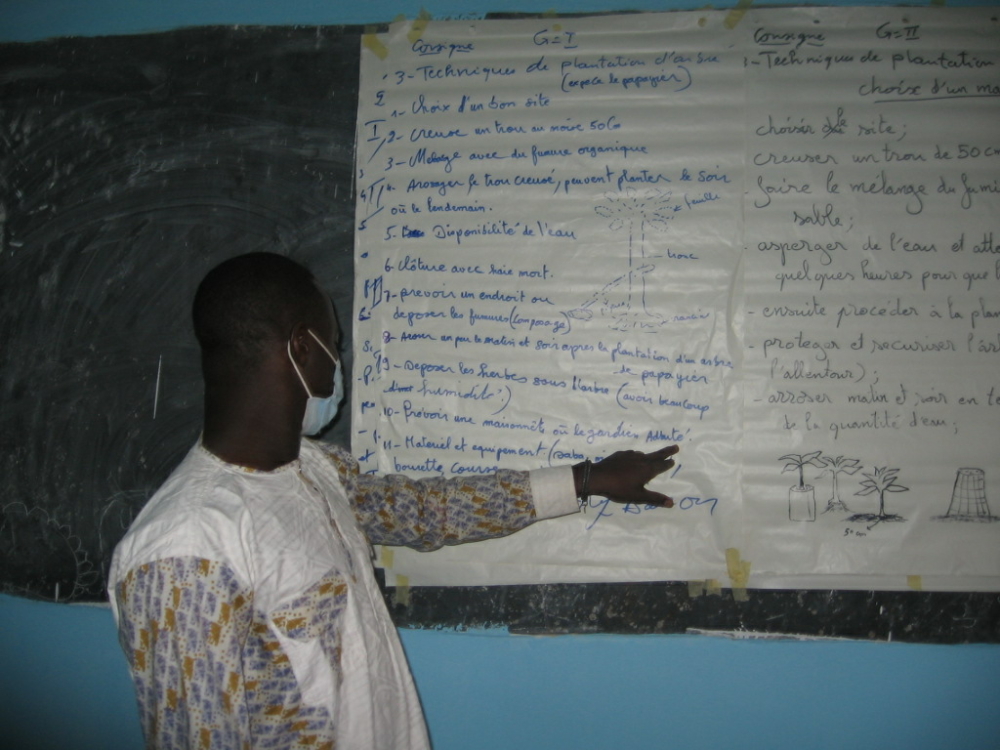 Consigne G=I
3- Techniques de plantation d'arbre
(espece le papayier)
1- Choix d'un bon site
2- Creuse un trou au moins 50Co
3- Melage avec du fumure organique
4- Arroser le trou creusé, peuvent planter le soir
où le lendemain.
5- Disponibilité de l'eau
6- Clôture avec haie mort.
7- prevoir un endroit ou
deposer les fumures (Composage)
8- Arroser un peu le matin et soir apres la plantation d'un arbre
de papayier
9- Deposer les herbes sous l'arbre (avoir beaucoup
humidité)
10- Prévoir une maisonnète où le gardien
11- Materiel et equipement
feuille
Consigne G=II
1- Techniques de plantation
choix d'un
choisir le site;
creuser un trou de 50 cm
- faire le mélange du
sable;
- asperger de l'eau et
quelques heures pour que
- ensuite procéder à la
- proteger et securiser
l'allentour);
- arroser matin et soir en
de la quantité d'eau;